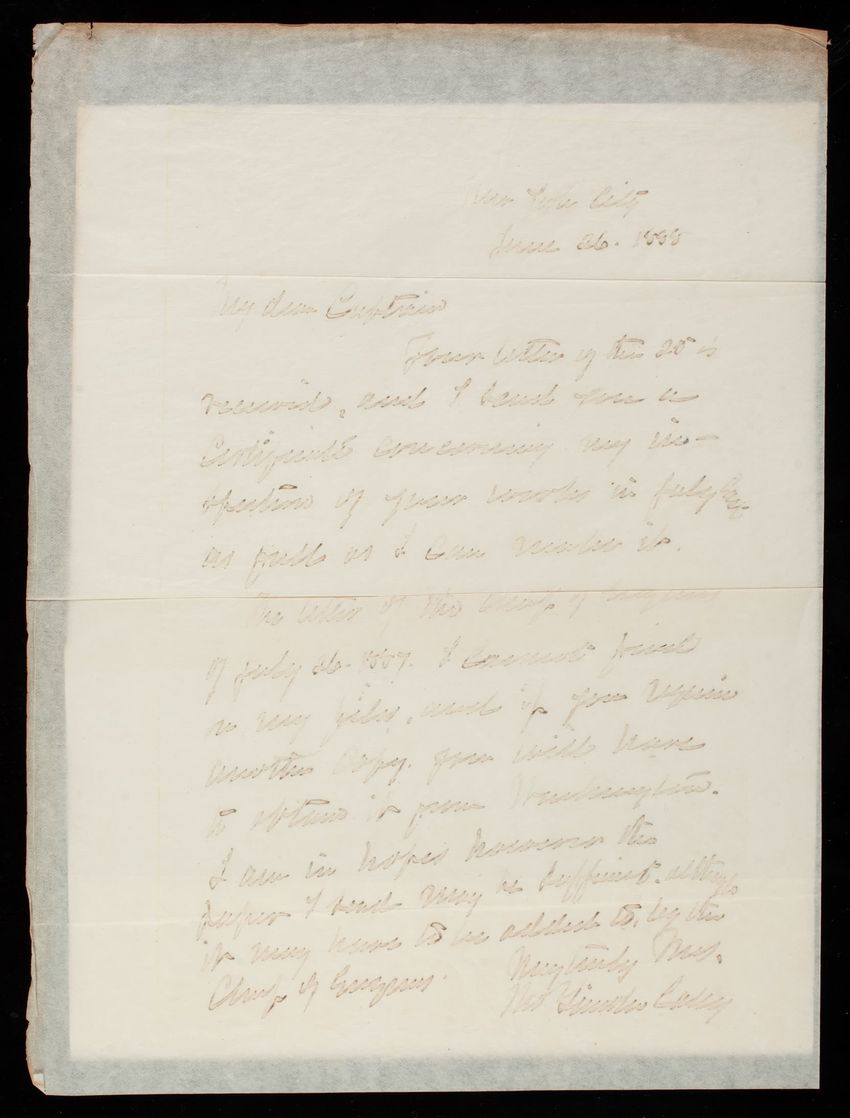 New York City
June 26. 1888
My dear Captain
Your letter of the 25 is
received, and I send you a
Certificate concerning my in-
spection of your works in July
as full as I can render it.
The letter of the Chief of Engineers
of July 26. 1887. I cannot find
in my files, and if you require
another copy. you will have
to obtain it from Washington.
I am in hopes however the
paper I send may be sufficient. altho
it may have to be added to, by the
Chief of Engineers.
Very truly Yrs.
Thos Lincoln Casey